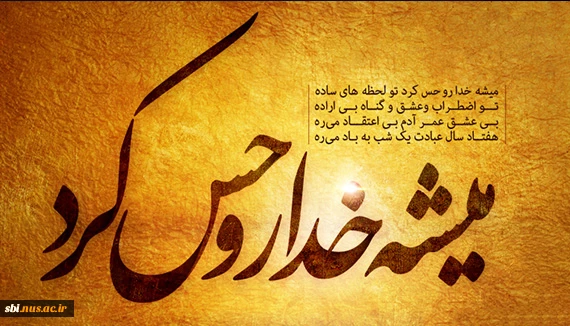 میشه خدا رو حس کرد تو لحظه های ساده
تو اضطراب وعشق و گناه بی اراده
بی عشق عمر آدم بی اعتقاد می‌ره
هفتاد سال عبادت یک شب به باد می‌ره
میشه خدا رو حس کرد
sbi.nus.ac.ir